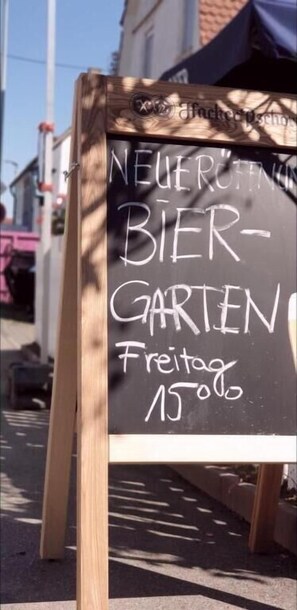 Hacker-Pschorr
NEUERÖFFNUN
BIER-
GARTEN
Freitag
15°°